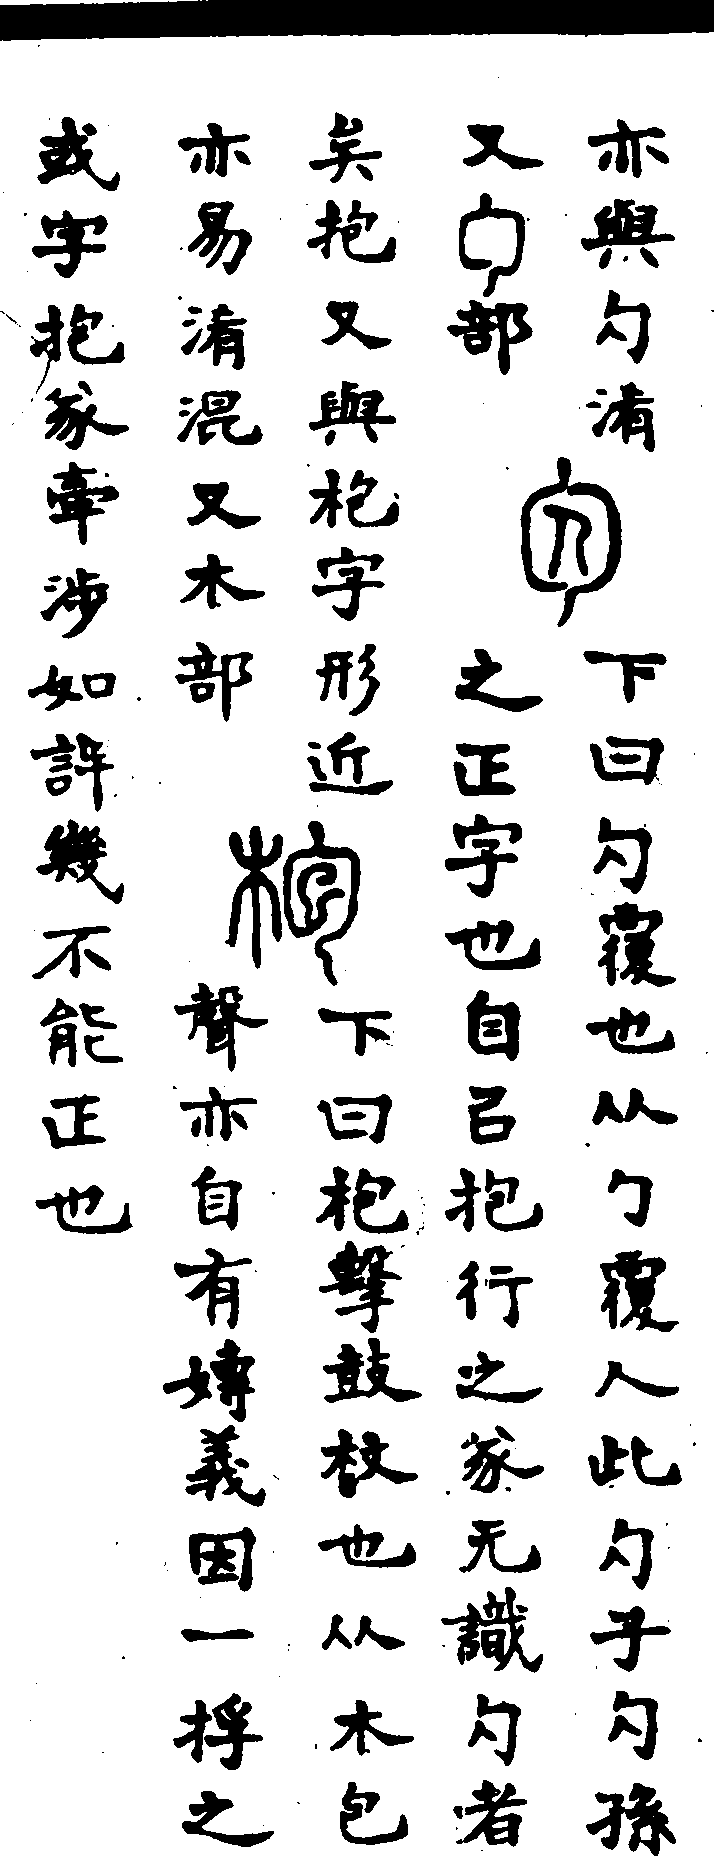 亦與勽淆
又勹部
勽
下曰勽覆也从勹覆人此勽子勽孫
之正字也自㠯抱行之篆无識勽者
矣抱又與枹字形近
亦易淆混又木部
枹
下曰枹擊鼓杖也从木包
聲亦自有嫥義因一捊之
或字抱篆牽涉如許幾不能正也